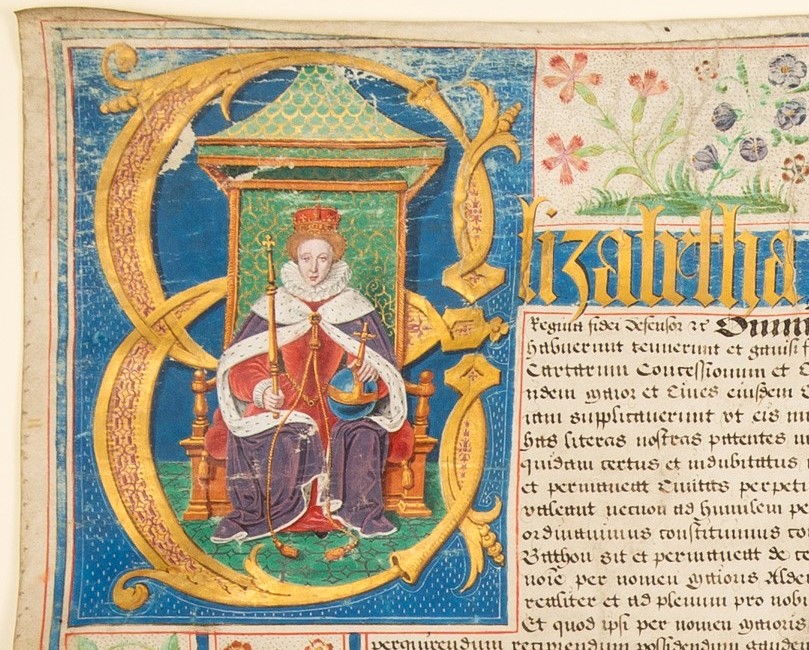 Elizabetha
Regina fidei defensor &c Omni
habuerunt tenuerunt et gavisi f
Cartarum Concessionum et C
ndem maior et Cives eiusdem C
iam supplicaverint vt eis
has literas nostras patentes
quidam certus et indubitatus
et permaneat Civitas perpet
valeant necnon ad humilem pe
ordinavimus constituimus co
Bathon sit et permaneat de ce
noie per nomen maioris Alder
realiter et ad plenum pro nobi
Et quod ipsi per nomen maioris
perquirendum recipiendum possidendum gaude